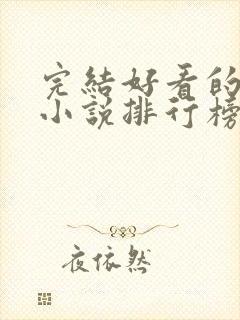 完結好看的
小說排行榜
夜依然